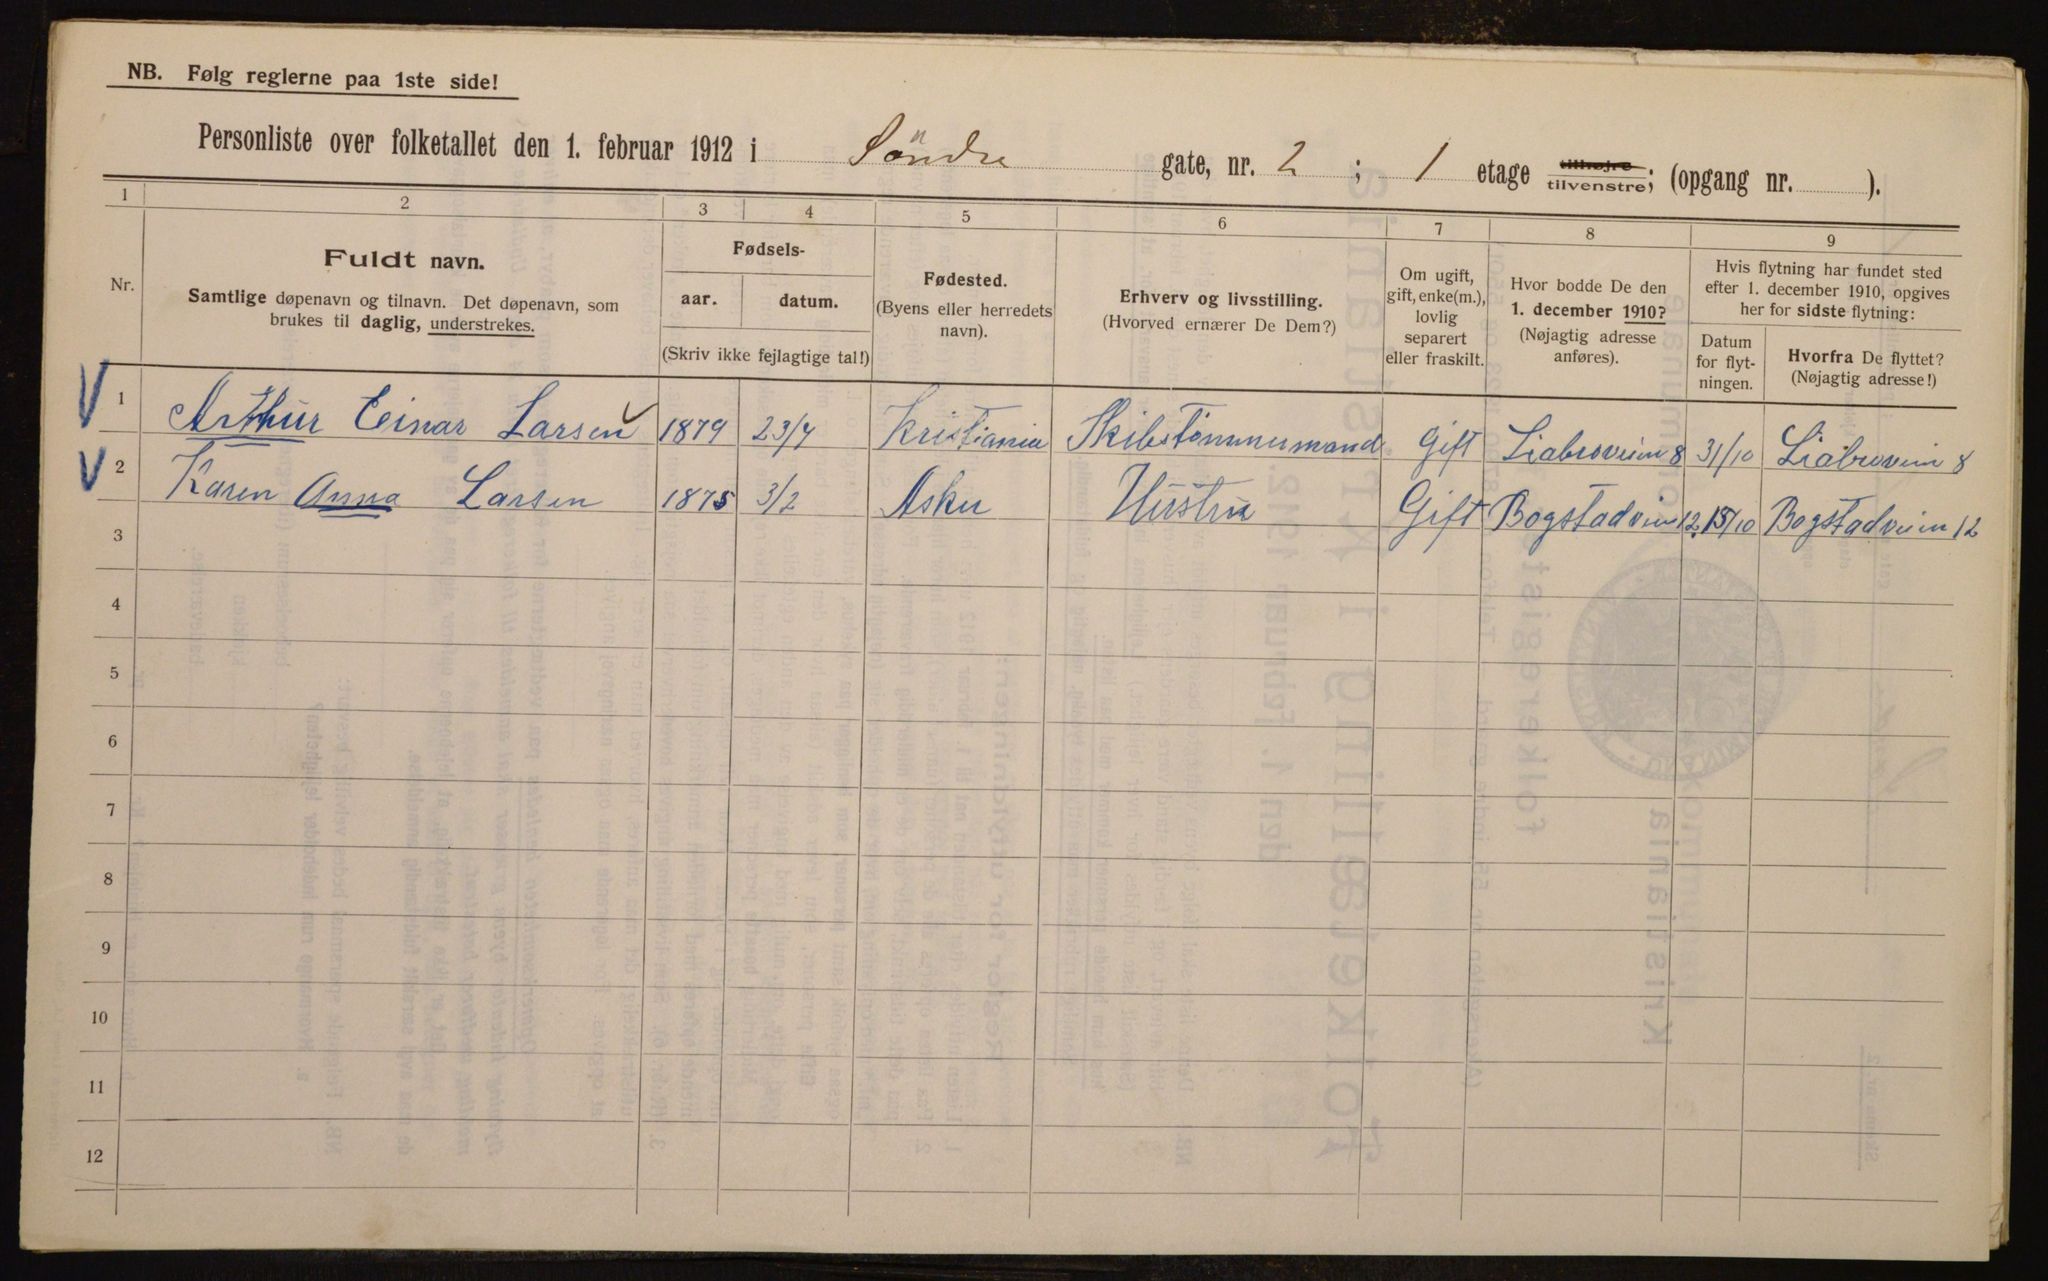 NB. Følg reglerne paa 1ste side!
Personliste over folketallet den 1. februar 1912 i Søndre gate, nr. 2 ; 1 etage tilhøjre tilvenstre; (opgang nr. ).
1 2 3 4 5 6 7 8 9
Nr.
Fuldt navn.
Samtlige døpenavn og tilnavn. Det døpenavn, som
brukes til daglig, understrekes.
Fødsels-
aar. datum.
(Skriv ikke fejlagtige tal!)
Fødested.
(Byens eller herredets
navn).
Erhverv og livsstilling.
(Hvorved ernærer De Dem?)
Om ugift,
gift, enke(m.),
lovlig
separert
eller fraskilt.
Hvor bodde De den
1. december 1910?
(Nøjagtig adresse
anføres).
Hvis flytning har fundet sted
efter 1. december 1910, opgives
her for sidste flytning:
Datum
for flyt-
ningen.
Hvorfra De flyttet?
(Nøjagtig adresse!)
1 Arthur Einar Larsen 1879 23/7 Kristiania Skibstømmermand Gift Liabroveien 8 31/10 Liabroveien 8
2 Karen Anna Larsen 1875 3/2 Asker Hustru Gift Bogstadveien 12 15/10 Bogstadveien 12
3
4
5
6
7
8
9
10
11
12